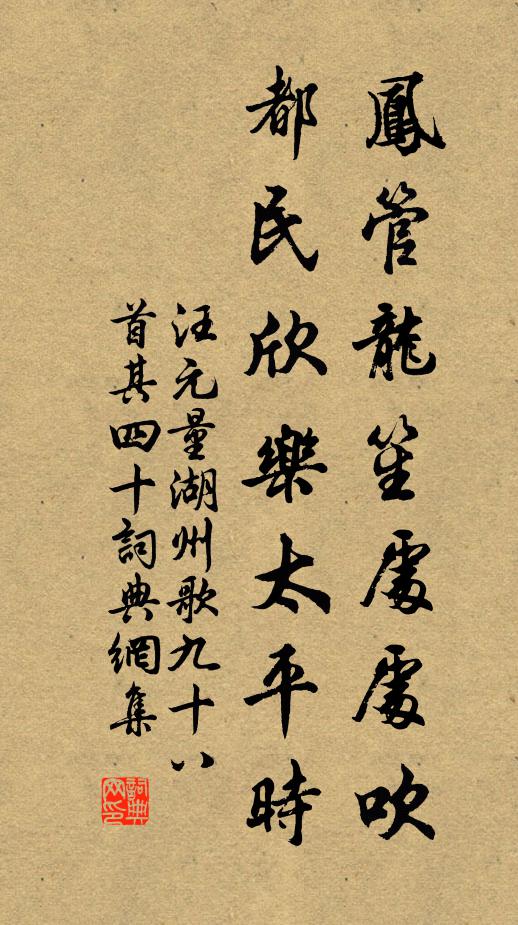 鳳管龍笙處處吹
都民欣樂太平時
汪元量湖州歌九十八
首其四十詞典網集
詞典网印